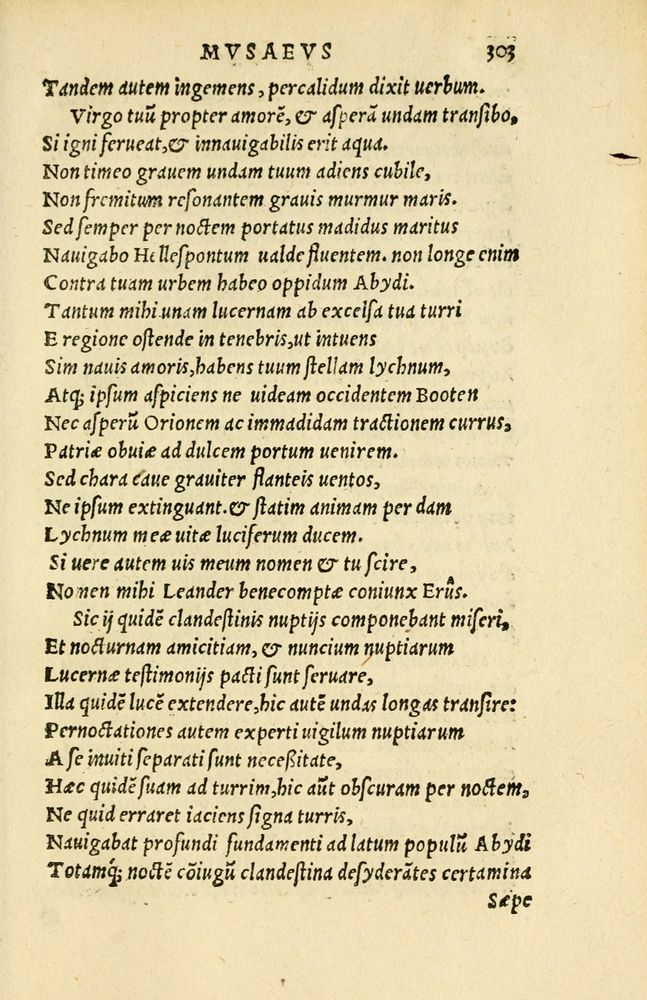 MVSAEVS 303
Tandem autem ingemens, percalidum dixit uerbum.
Virgo tuũ propter amorẽ, & aſperã undam tranſibo,
Si igni ferueat, & innauigabilis erit aqua.
Non timeo grauem undam tuum adiens cubile,
Non fremitum reſonantem grauis murmur maris.
Sed ſemper per noctem portatus madidus maritus
Nauigabo Helleſpontum ualde fluentem. non longe enim
Contra tuam urbem habeo oppidum Abydi.
Tantum mihi unam lucernam ab excelſa tua turri
E regione oſtende in tenebris, ut intuens
Sim nauis amoris, habens tuum ſtellam lychnum,
Atq; ipſum aſpiciens ne uideam occidentem Booten
Nec aſperũ Orionem ac immadidam tractionem currus,
Patriæ obuiæ ad dulcem portum uenirem.
Sed chara caue grauiter flanteis uentos,
Ne ipſum extinguant. & ſtatim animam per dam
Lychnum meæ uitæ luciferum ducem.
Si uere autem uis meum nomen & tu ſcire,
No nen mihi Leander benecomptæ coniunx Erûs.
Sic ij quidẽ clandeſtinis nuptijs componebant miſeri,
Et nocturnam amicitiam, & nuncium nuptiarum
Lucernæ teſtimonijs pacti ſunt ſeruare,
Illa quidẽ lucẽ extendere, hic autẽ undas longas tranſire:
Pernoctationes autem experti uigilum nuptiarum
A ſe inuiti ſeparati ſunt neceßitate,
Hæc quidẽ ſuam ad turrim, hic aũt obſcuram per noctem,
Ne quid erraret iaciens ſigna turris,
Nauigabat profundi fundamenti ad latum populũ Abydi
Totamq́; noctẽ cõiugũ clandeſtina deſyderãtes certamina
Sæpe